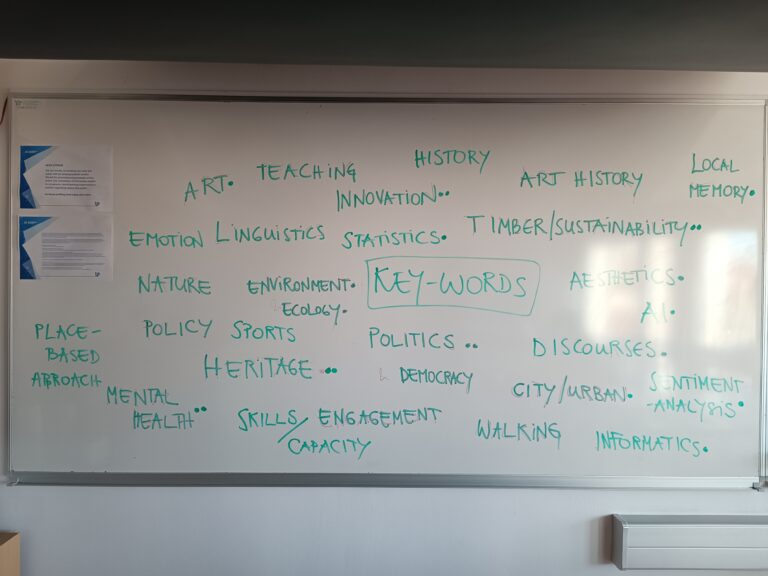 HISTORY
ART• TEACHING
INNOVATION••
ART HISTORY
LOCAL
MEMORY•
EMOTION LINGUISTICS STATISTICS• TIMBER/SUSTAINABILITY••
NATURE ENVIRONMENT•
ECOLOGY•
KEY-WORDS
AESTHETICS•
AI•
PLACE-
BASED
APROACH
POLICY SPORTS
POLITICS ••
DISCOURSES•
HERITAGE ••
DEMOCRACY
CITY/URBAN•
SENTIMENT
-ANALYSIS•
MENTAL
HEALTH••
SKILLS/ ENGAGEMENT
CAPACITY
WALKING
INFORMATICS•